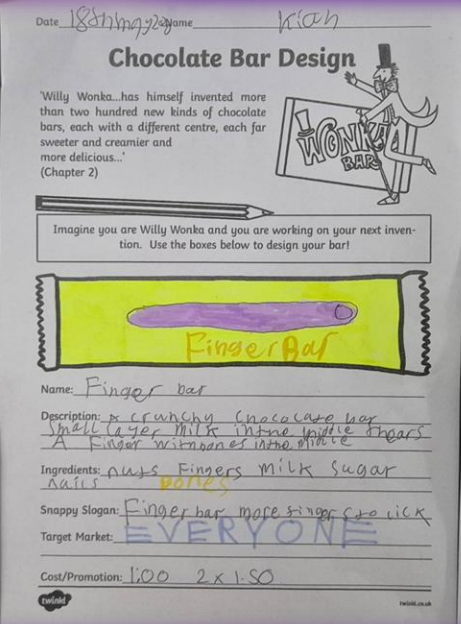 Date 18th may Name Kian
Chocolate Bar Design
'Willy Wonka...has himself invented more
than two hundred new kinds of chocolate
bars, each with a different centre, each far
sweeter and creamier and
more delicious...'
(Chapter 2)
WONKA
BAR
Imagine you are Willy Wonka and you are working on your next inven-
tion. Use the boxes below to design your bar!
Finger Bar
Name: Finger bar
Description: A crunchy Chocolate bar
Small layer milk in the middle
A Finger with bones in the middle
Ingredients: nuts Fingers milk Sugar
nails bones
Snappy Slogan: Finger bar more fingers to lick
Target Market: EVERYONE
Cost/Promotion: 1:00 2x1.50
twinkl
twinkl.co.uk